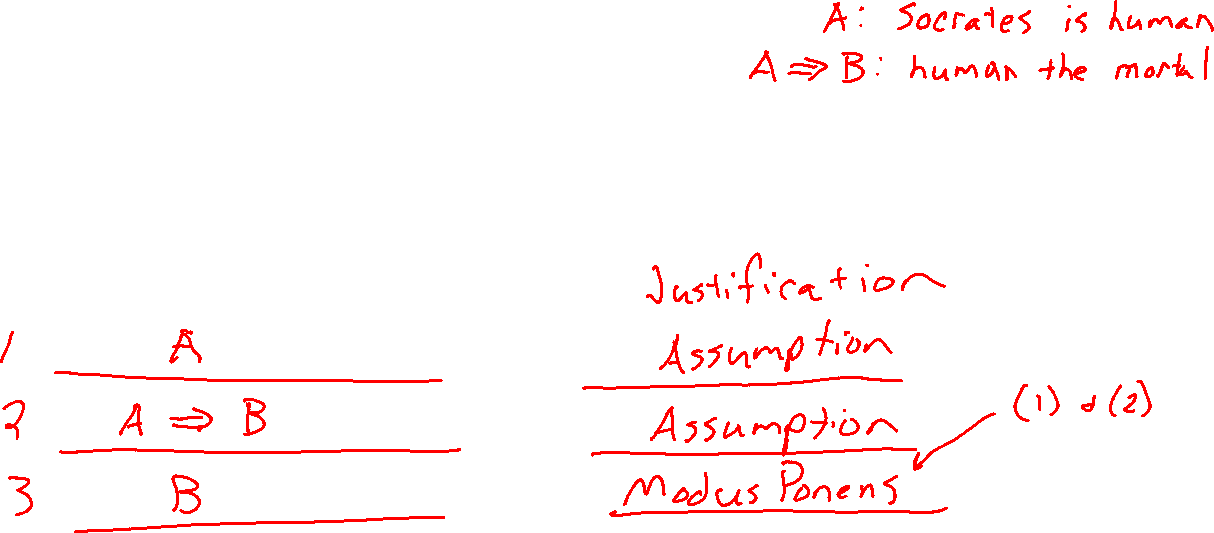 A: Socrates is human
A ⇒ B: human the mortal
Justification
1 A Assumption
2 A ⇒ B Assumption (1) & (2)
3 B Modus Ponens